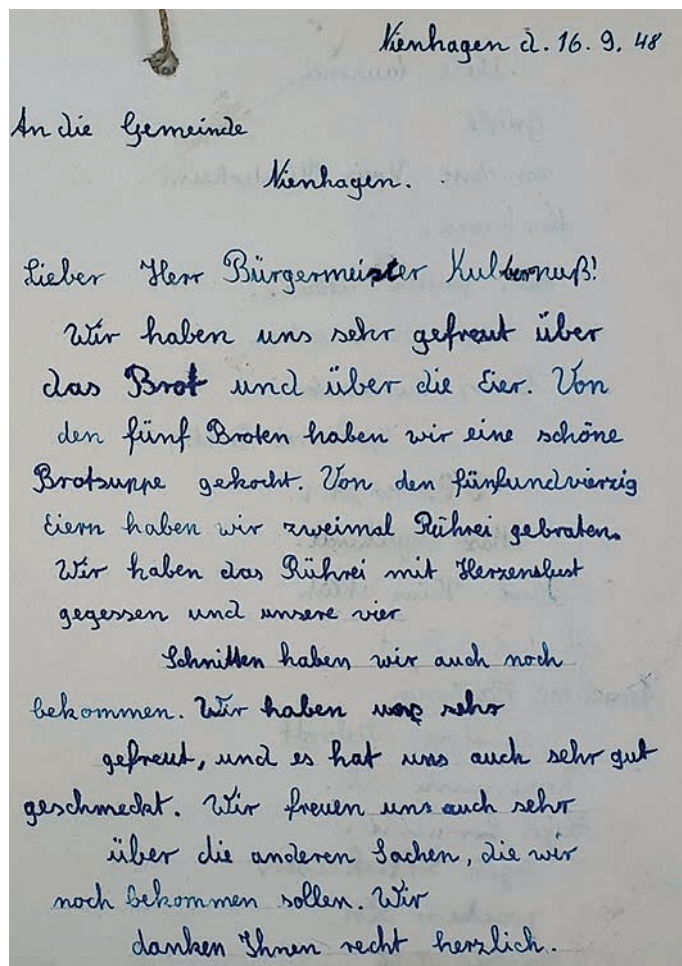 Nienhagen d. 16. 9. 48
An die Gemeinde
Nienhagen.
Lieber Herr Bürgermeister Kulbernuß!
Wir haben uns sehr gefreut über
das Brot und über die Eier. Von
den fünf Broten haben wir eine schöne
Brotsuppe gekocht. Von den fünfundvierzig
Eiern haben wir zweimal Rührei gebraten.
Wir haben das Rührei mit Herzenslust
gegessen und unsere vier
Schnitten haben wir auch noch
bekommen. Wir haben uns sehr
gefreut, und es hat uns auch sehr gut
geschmeckt. Wir freuen uns auch sehr
über die anderen Sachen, die wir
noch bekommen sollen. Wir
danken Ihnen recht herzlich.